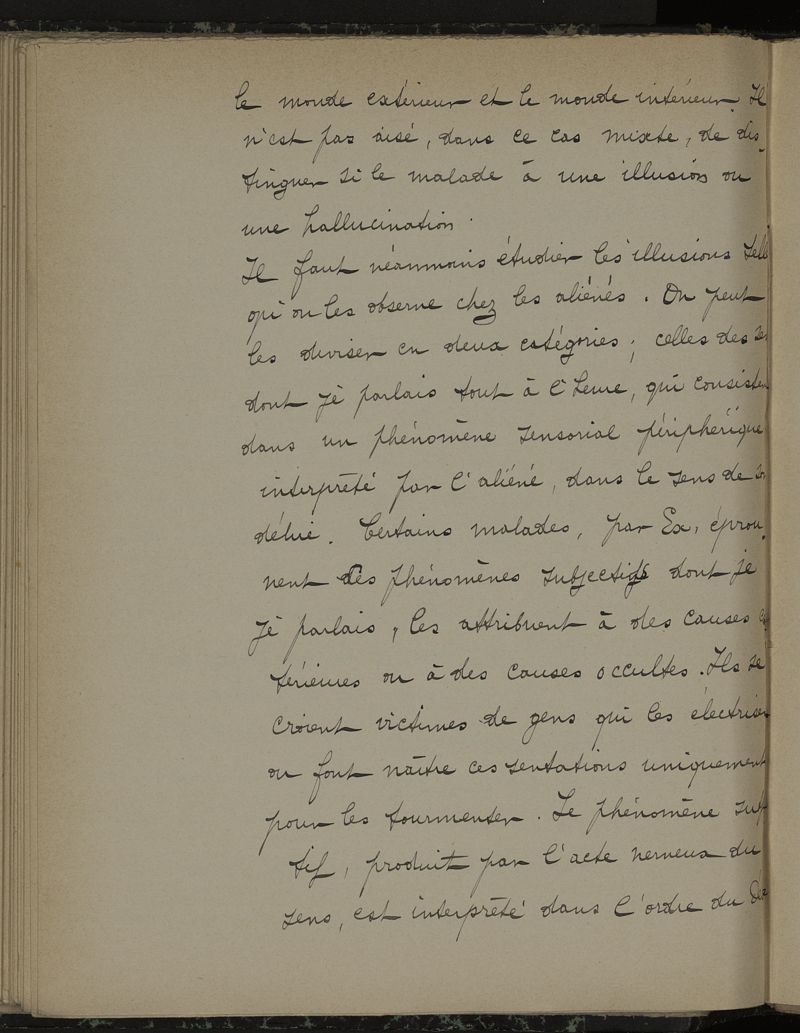 le monde extérieur et le monde intérieur. Il
n'est pas aisé, dans ce cas mixte, de dis-
tinguer si le malade à une illusion ou
une hallucination.
Il faut néanmoins étudier les illusions tell
qu'on les observe chez les aliénés. On peut
les diviser en deux catégories; celles des se
dont je parlais tout à l'heure, qui consisten
dans un phénomène sensoriel périphérique
interprêté par l'aliéné, dans le sens de so
délire. Certains malades, par Ex, éprou-
vent des phénomènes subjectifs dont je
je parlais, les attribuent à des causes ex
térieures ou à des causes occultes. Ils se
croient victimes de gens qui les électrisen
ou font naître ces sensations uniquement
pour les tourmenter. Le phénomène subj
tif, produit par l'acte nerveux du
sens, est interprêté dans l'ordre du Dél